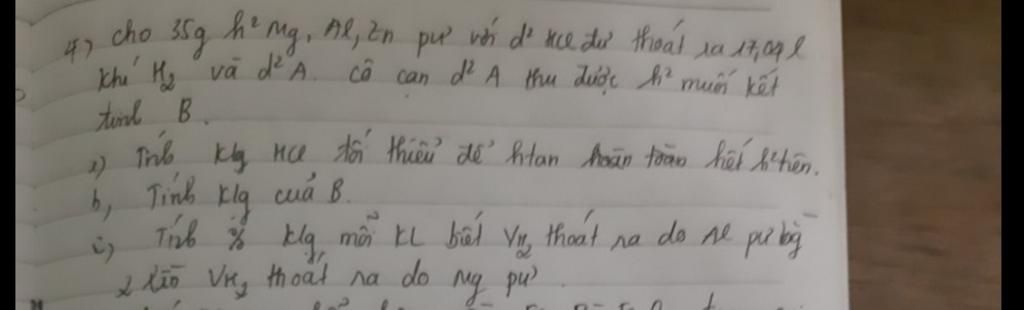 4) cho 35g h² Mg, Al, Zn pư với d² HCl dư thoát ra 17,09 l
khí H₂ và d² A. Cô cạn d² A thu được h² muối kết
tinh B.
a) Tính klg HCl tối thiểu để htan hoàn toàn hết h² trên.
b, Tính klg của B.
c) Tính % klg mỗi KL biết VH₂ thoát ra do Al pư bg
2 lần VH₂ thoát ra do Mg pư